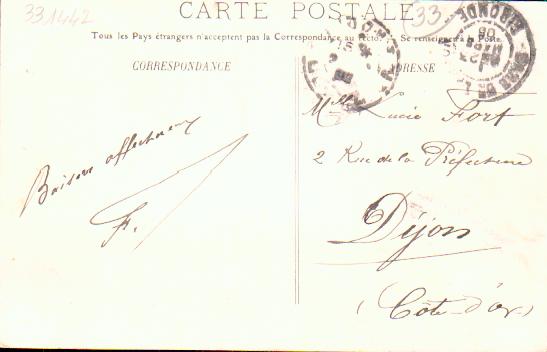 331442
33
CARTE POSTALE
Tous les Pays étrangers n'acceptent pas la Correspondance au recto. - Se renseigner à la Poste.
CORRESPONDANCE
ADRESSE
Baisers affectueux
F.
Mlle Lucie Fort
2 Rue de la Préfecture
Dijon
(Côte-d'or)